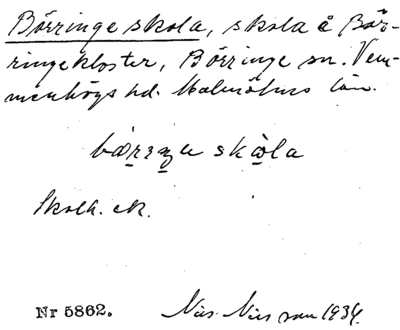 Börringe skola, skola å Bör-
ringekloster, Börringe sn. Vem-
menhögs hd. Malmöhus län.
skola
Skolk. ek.
Nr 5862. Nils Nilsson 1934.